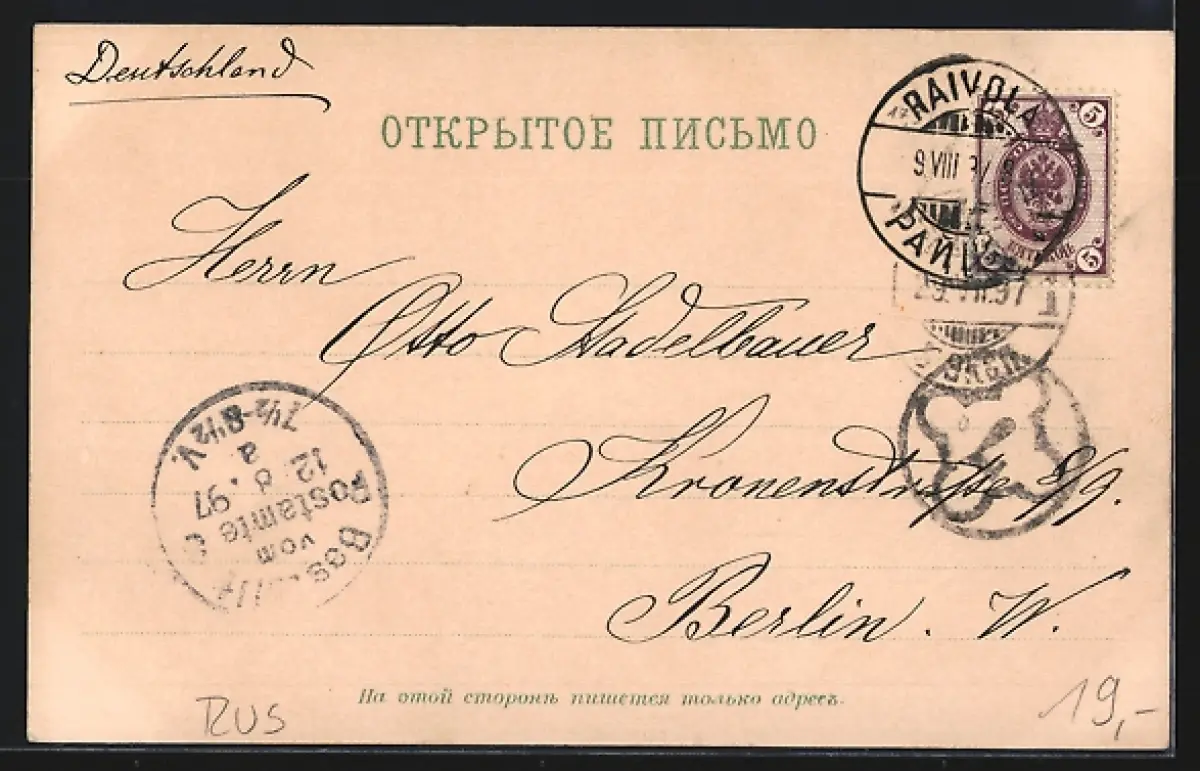 Deutschland
ОТКРЫТОЕ ПИСЬМО
RAIVOLA
9.VIII
РАЙ
5 5
5
29.VII.97
Herrn
Otto Stadelbauer
Kronenstraße 8/9.
Berlin. W.
7½-8½V.
a
12. 8. 97
Postamte C
vom
Bestellt
На этой сторонѣ пишется только адресъ.
RUS
19,-